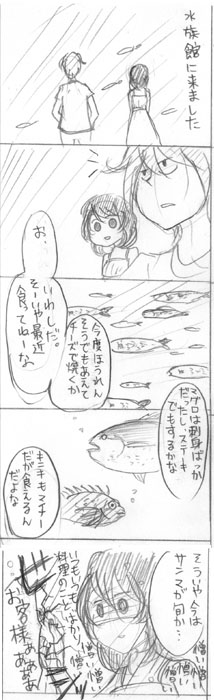 水族館に来ました
お、
いわしだ。
そーいや最近
食ってねーな
今度ほうれん
そうでもあえて
チーズで焼くか
マグロは刺身ばっか
だったし、ステーキ
でもするかな
キンキもマイナー
だが食えるん
だよな
そういや今は
サンマが旬か…
憎い憎い
憎い憎い
憎い憎い
いつもいつもそればっかり
料理のことばかり
お客様ぁぁぁぁ